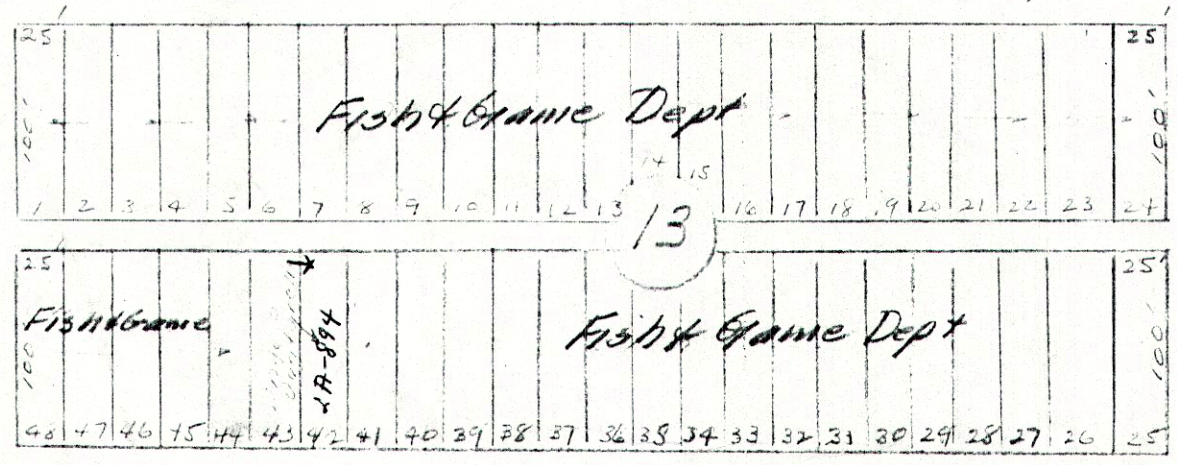 25' 25'
Fish & Game Dept
100' 100'
14 15
1 2 3 4 5 6 7 8 9 10 11 12 13 16 17 18 19 20 21 22 23 24
13
25' 25'
Fish & Game
2A-894
Fish & Game Dept
100 100'
48 47 46 45 44 43 42 41 40 39 38 37 36 35 34 33 32 31 30 29 28 27 26 25